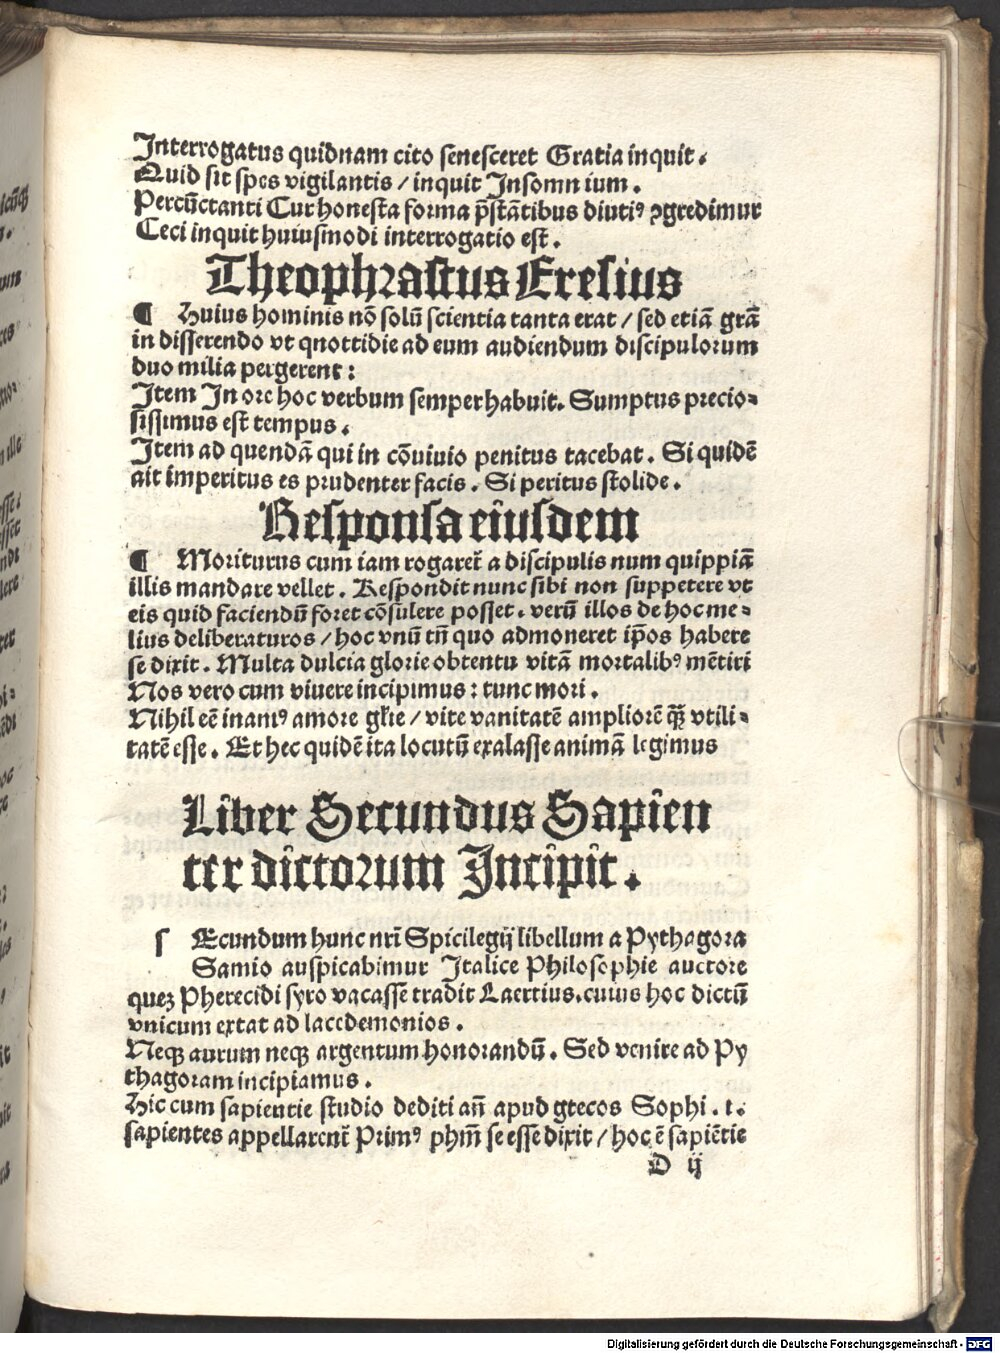 Interrogatus quidnam cito senesceret Gratia inquit.
Quid sit spes vigilantis / inquit Insomnium.
Percūctanti Cur honesta forma p̄stātibus diutiꝰ ꝯgredimur
Ceci inquit huiusmodi interrogatio est.
Theophrastus Eresius
¶ Huius hominis nō solū scientia tanta erat / sed etiā grā
in disserendo vt qnottidie ad eum audiendum discipulorum
duo milia pergerent:
Item In ore hoc verbum semper habuit. Sumptus precio-
sissimus est tempus.
Item ad quendā qui in cōuiuio penitus tacebat. Si quidē
ait imperitus es prudenter facis. Si peritus stolide.
Responsa eiusdem
¶ Moriturus cum iam rogaret̄ a discipulis num quippiā
illis mandare vellet. Respondit nunc sibi non suppetere vt
eis quid faciendū foret cōsulere posset. verū illos de hoc me-
lius deliberaturos / hoc vnū tn̄ quo admoneret ip̄os habere
se dixit. Multa dulcia glorie obtentu vitā mortalibꝰ mētiri
Nos vero cum viuere incipimus: tunc mori.
Nihil eē inaniꝰ amore gl'ie / vite vanitatē ampliorē qꝫ̄ vtili-
tatē esse. Et hec quidē ita locutū exalasse animā legimus
Liber Secundus Sapien
ter dictorum Incipit.
s Ecundum hunc nr̄i Spicilegij libellum a Pythagora
Samio auspicabimur Italice Philosophie auctore
queꝫ Pherecidi syro vacasse tradit Laertius. cuius hoc dictū
vnicum extat ad lacedemonios.
Neqꝫ aurum neqꝫ argentum honorandū. Sed venire ad Py
thagoram incipiamus.
Hic cum sapientie studio dediti an̄ apud gtecos Sophi. i.
sapientes appellarent̄ Primꝰ phm̄ se esse dixit / hoc ē sapiētie
D ij
Digitalisierung gefördert durch die Deutsche Forschungsgemeinschaft - DFG